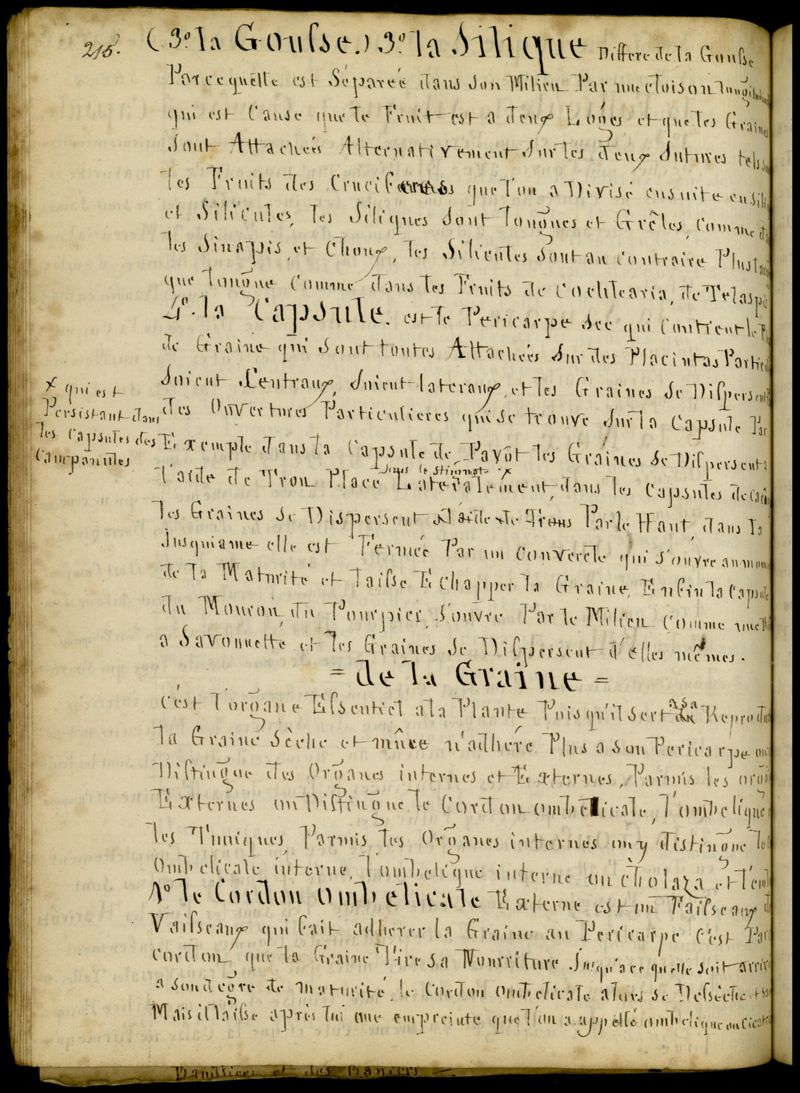 216.
(3º. la Gousse.) 3º. la Silique Differe de la Gousse
Parcequelle est Séparéé dans Son Milieu Par une cloison
qui est Cause que le Fruit est a deux Loges et que les Graines
Sont Attachéés Alternativement Sur les deux Sutures tels
les Fruits des Crucifereres que l'on a Divisé ensuite en
et Silicules, les Siliques Sont longues et Grêles, Comme
les Sinapis, et Choux, les Silicules Sont au contraire Plus
que longue Comme dans les Fruits de Cochlearia, de Telaspi
4º. la Capsule. est le Pericarpe Sec qui Contient le
de Graine qui Sont toutes Attachéés Sur des Placintas
Soient Centraux, Soient lateraux, et les Graines Se Dispersent
des Ouvertures Particulieres qui se trouve Sur la Capsule Par
Exemple dans la Capsule de Pavot les Graines Se Dispersent a
l'aide de Trou Place Lateralement, dans les Capsules de
Sous le Stigmat x
x qui est
Persistant dans
les Capsules des
Campanules
les Graines Se Dispersent Par le Haut, dans la
Jusquiame elle est Ferméé Par un Convercle qui S'ouvre au
de la Maturité et laisse Echapper la Graine, Enfin la Capsule
du Mouron, du Pourpier, S'ouvre Par le Milieu Comme une
a Savonnette et les Graines Se Dispersent d'elles mêmes.
= de la Graine =
C'est l'organe Essentiel a la Plante Puis qu'il Sert a sa
la Graine Sèche et mûre n'adhére Plus a Son Pericarpe on
Distingue des Organes internes et Externes, Parmis les
Externes on Distingue le Cordon ombelicale, l'ombelique
les Tuniques, Parmis les Organes internes on y distingue le
Ombelicale interne, l'ombelique interne ou cholaza et
1º. le Cordon Ombelicale Externe est un Faisceaux de
Vaisceaux qui fait adherer la Graine au Pericarpe C'est Par
Cordon que la Graine Tire Sa Nourriture Jusqu'a ce quelle Soit
a Son degre de maturité, le Cordon ombelicale alors Se Desséche
Mais il laisse après lui une empreinte que l'on a appellé ombelique